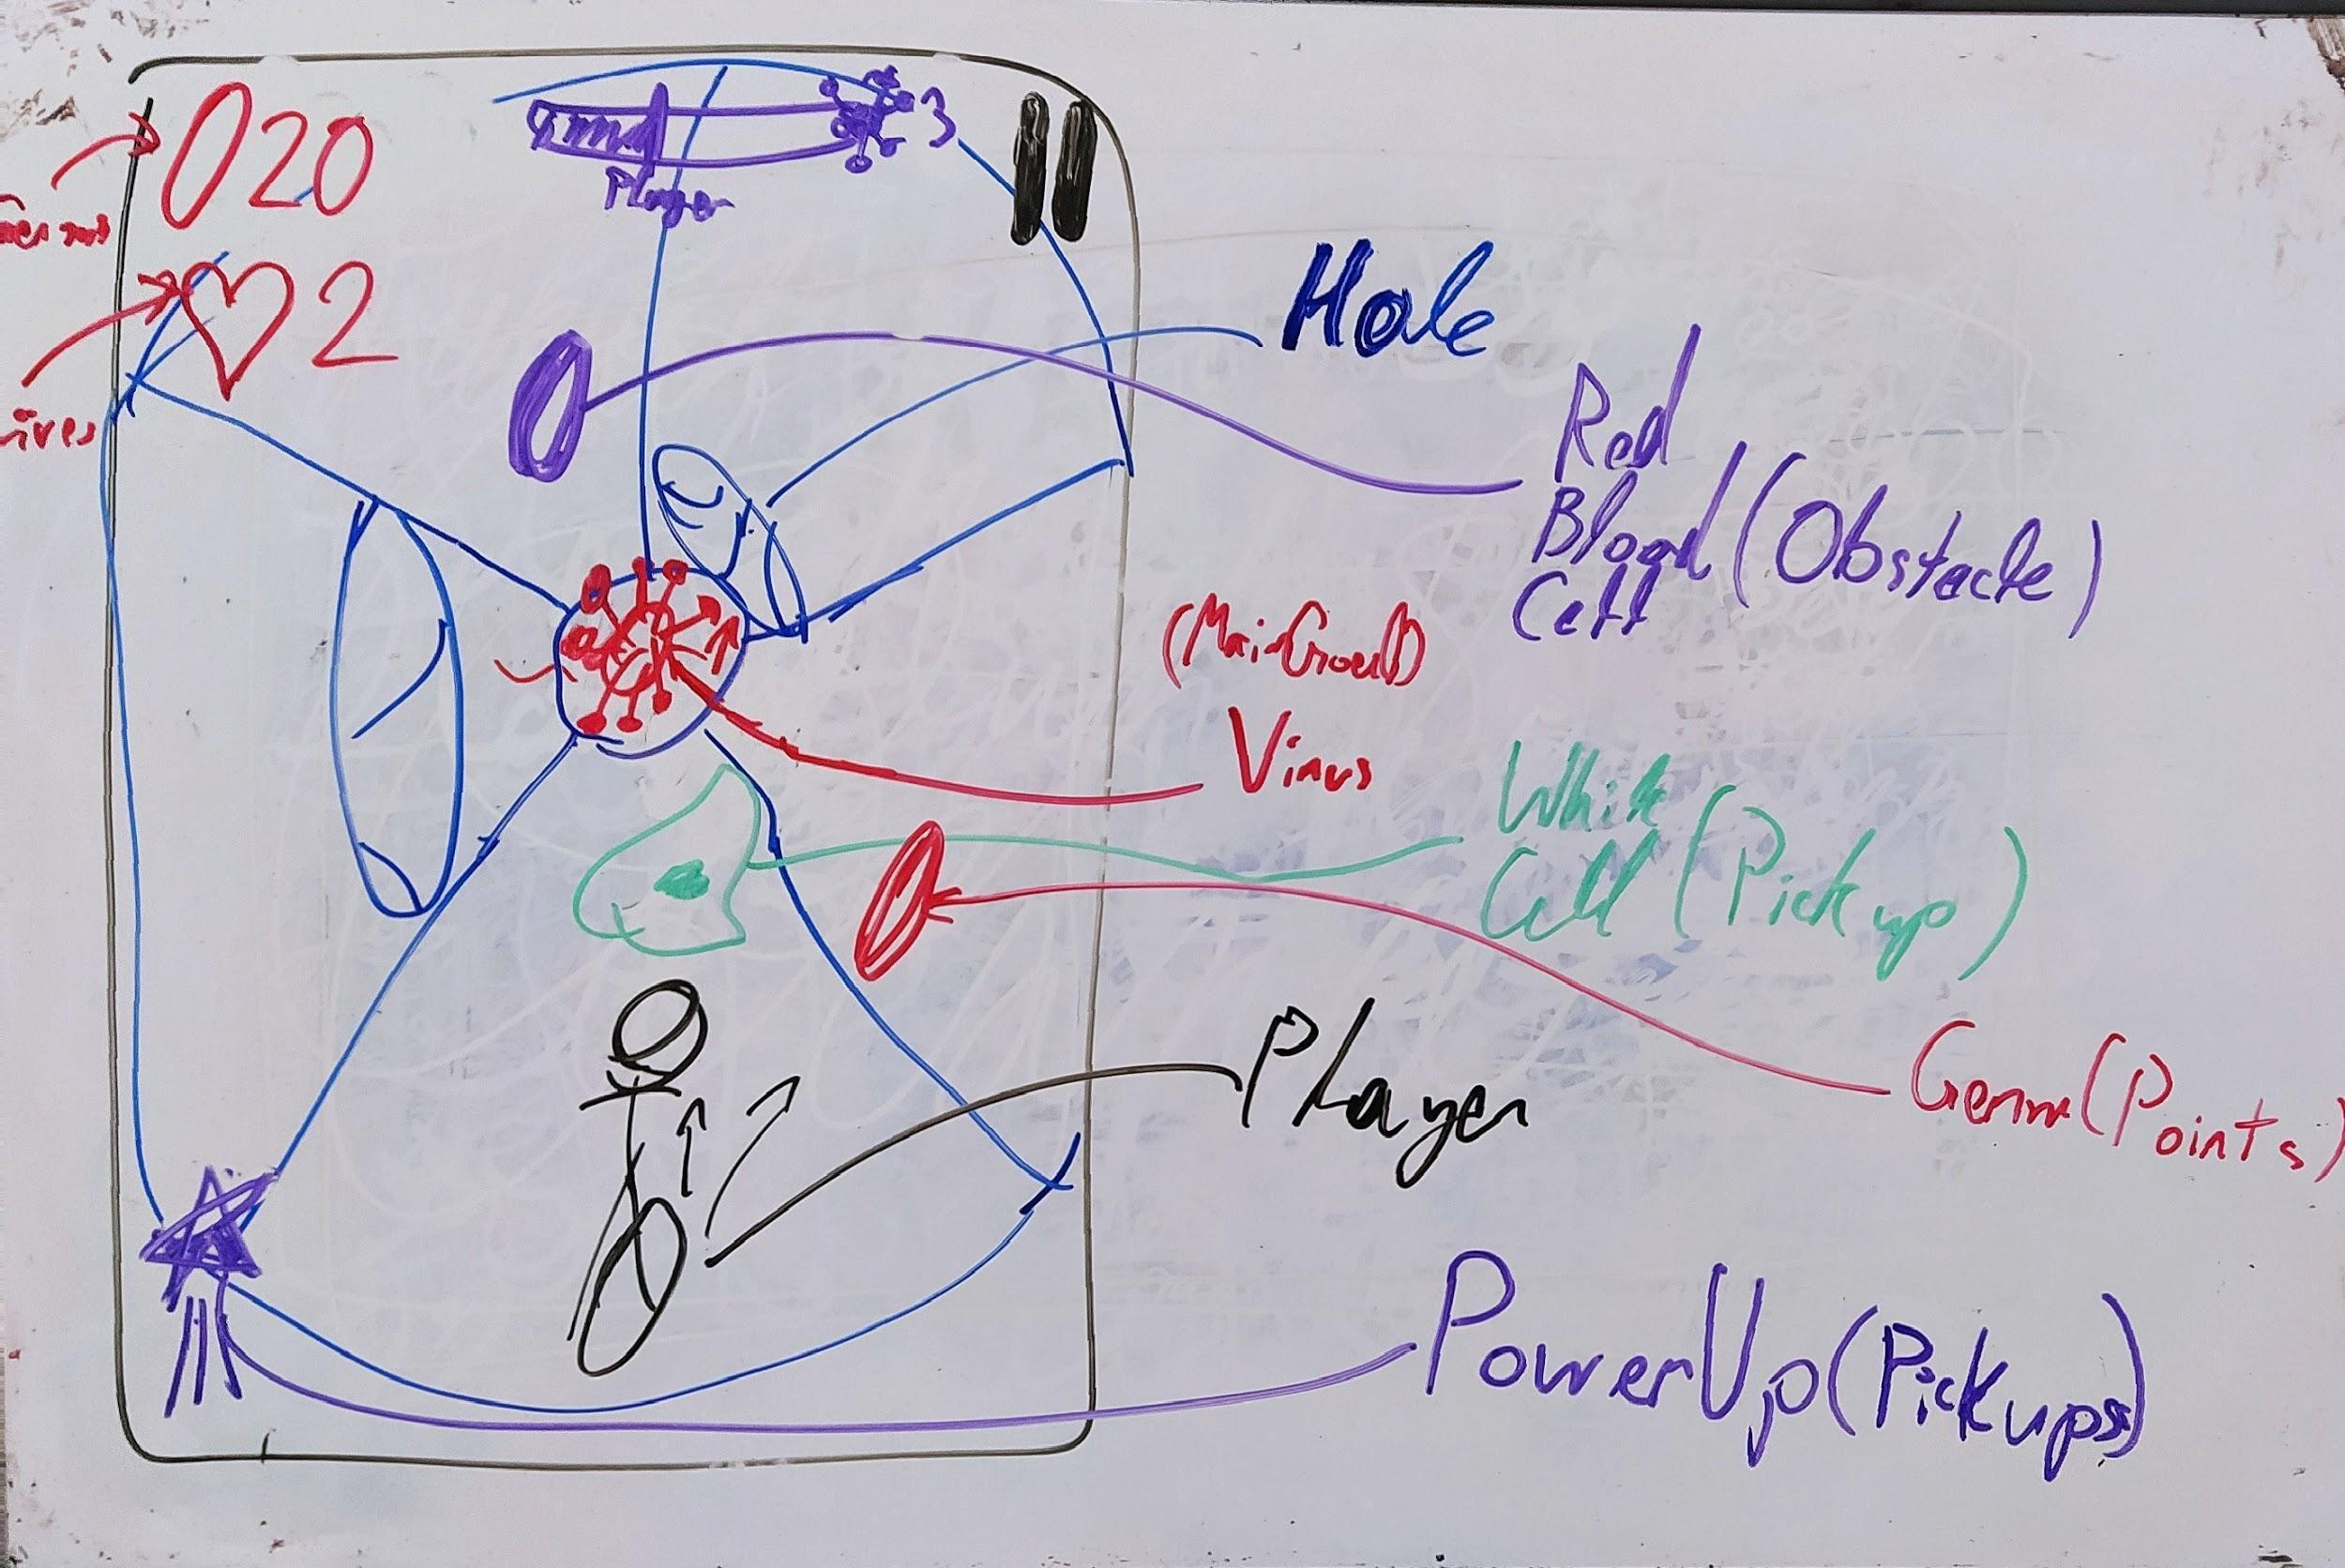 020
3
Player
2
Hole
Red
Blood (Obstacle)
Cell
Virus
White
Cell (Pickup)
Germ (Points)
Player
PowerUp (Pickups)